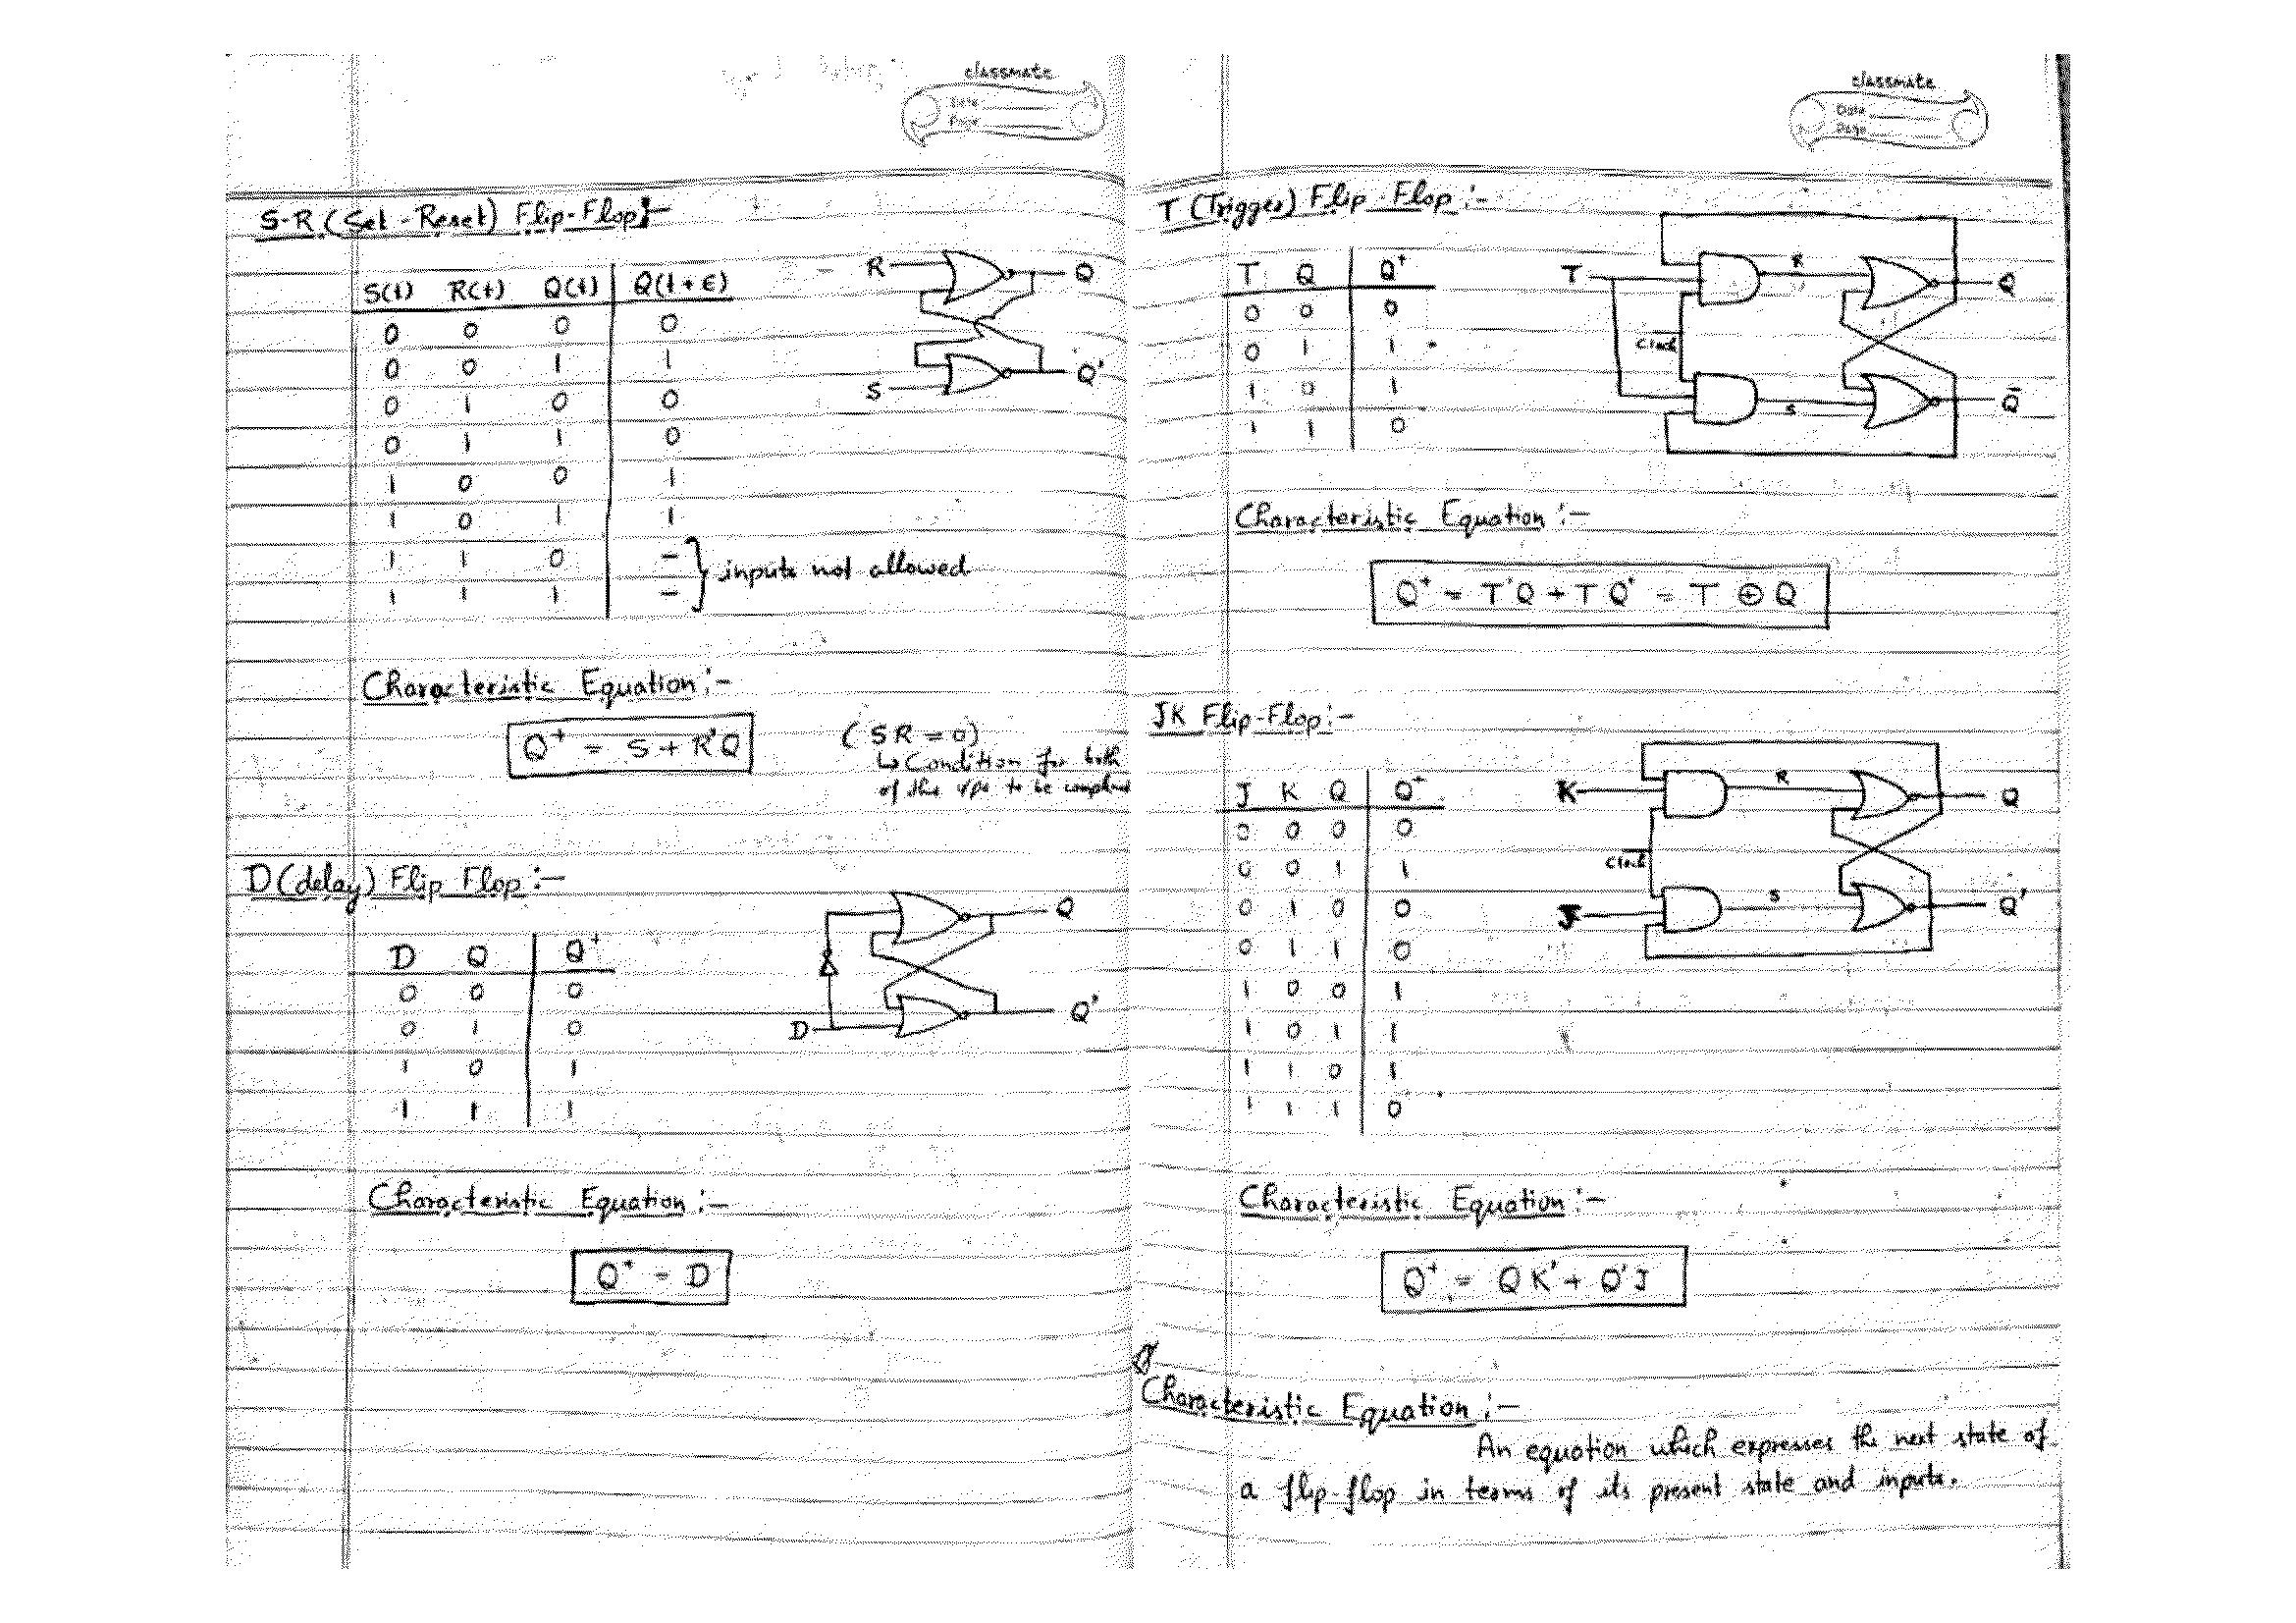 classmate
Date
Page
S-R (Set-Reset) Flip-Flop:-
S(t) R(t) Q(t) Q(t+ε)
0 0 0 0
0 0 1 1
0 1 0 0
0 1 1 0
1 0 0 1
1 0 1 1
1 1 0 -
1 1 1 -
} inputs not allowed
R Q
S Q'
Characteristic Equation:-
Q⁺ = S + R'Q
(SR = 0)
↳ Condition for both
of the i/ps to be
D (delay) Flip Flop:-
D Q Q⁺
0 0 0
0 1 0
1 0 1
1 1 1
Q
D Q'
Characteristic Equation:-
Q⁺ = D
classmate
Date
Page
T (Trigger) Flip-Flop:-
T Q Q⁺
0 0 0
0 1 1
1 0 1
1 1 0
T R Q
Clock
S Q̄
Characteristic Equation:-
Q⁺ = T'Q + TQ' = T ⊕ Q
JK Flip-Flop:-
J K Q Q⁺
0 0 0 0
0 0 1 1
0 1 0 0
0 1 1 0
1 0 0 1
1 0 1 1
1 1 0 1
1 1 1 0
K R Q
Clock
J S Q'
Characteristic Equation:-
Q⁺ = QK' + Q'J
Characteristic Equation:-
An equation which expresses the next state of
a flip-flop in terms of its present state and inputs.